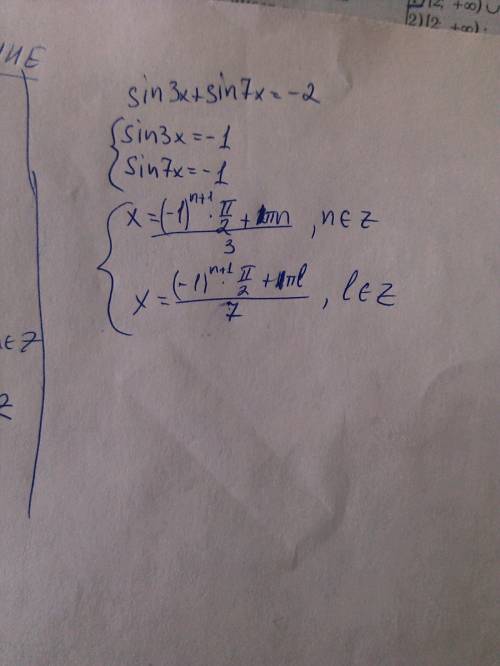 sin3x+sin7x=-2
{sin3x=-1
{sin7x=-1
{x=((-1)^(n+1)·π/2+πn)/3, n∈Z
{x=((-1)^(n+1)·π/2+πl)/7, l∈Z